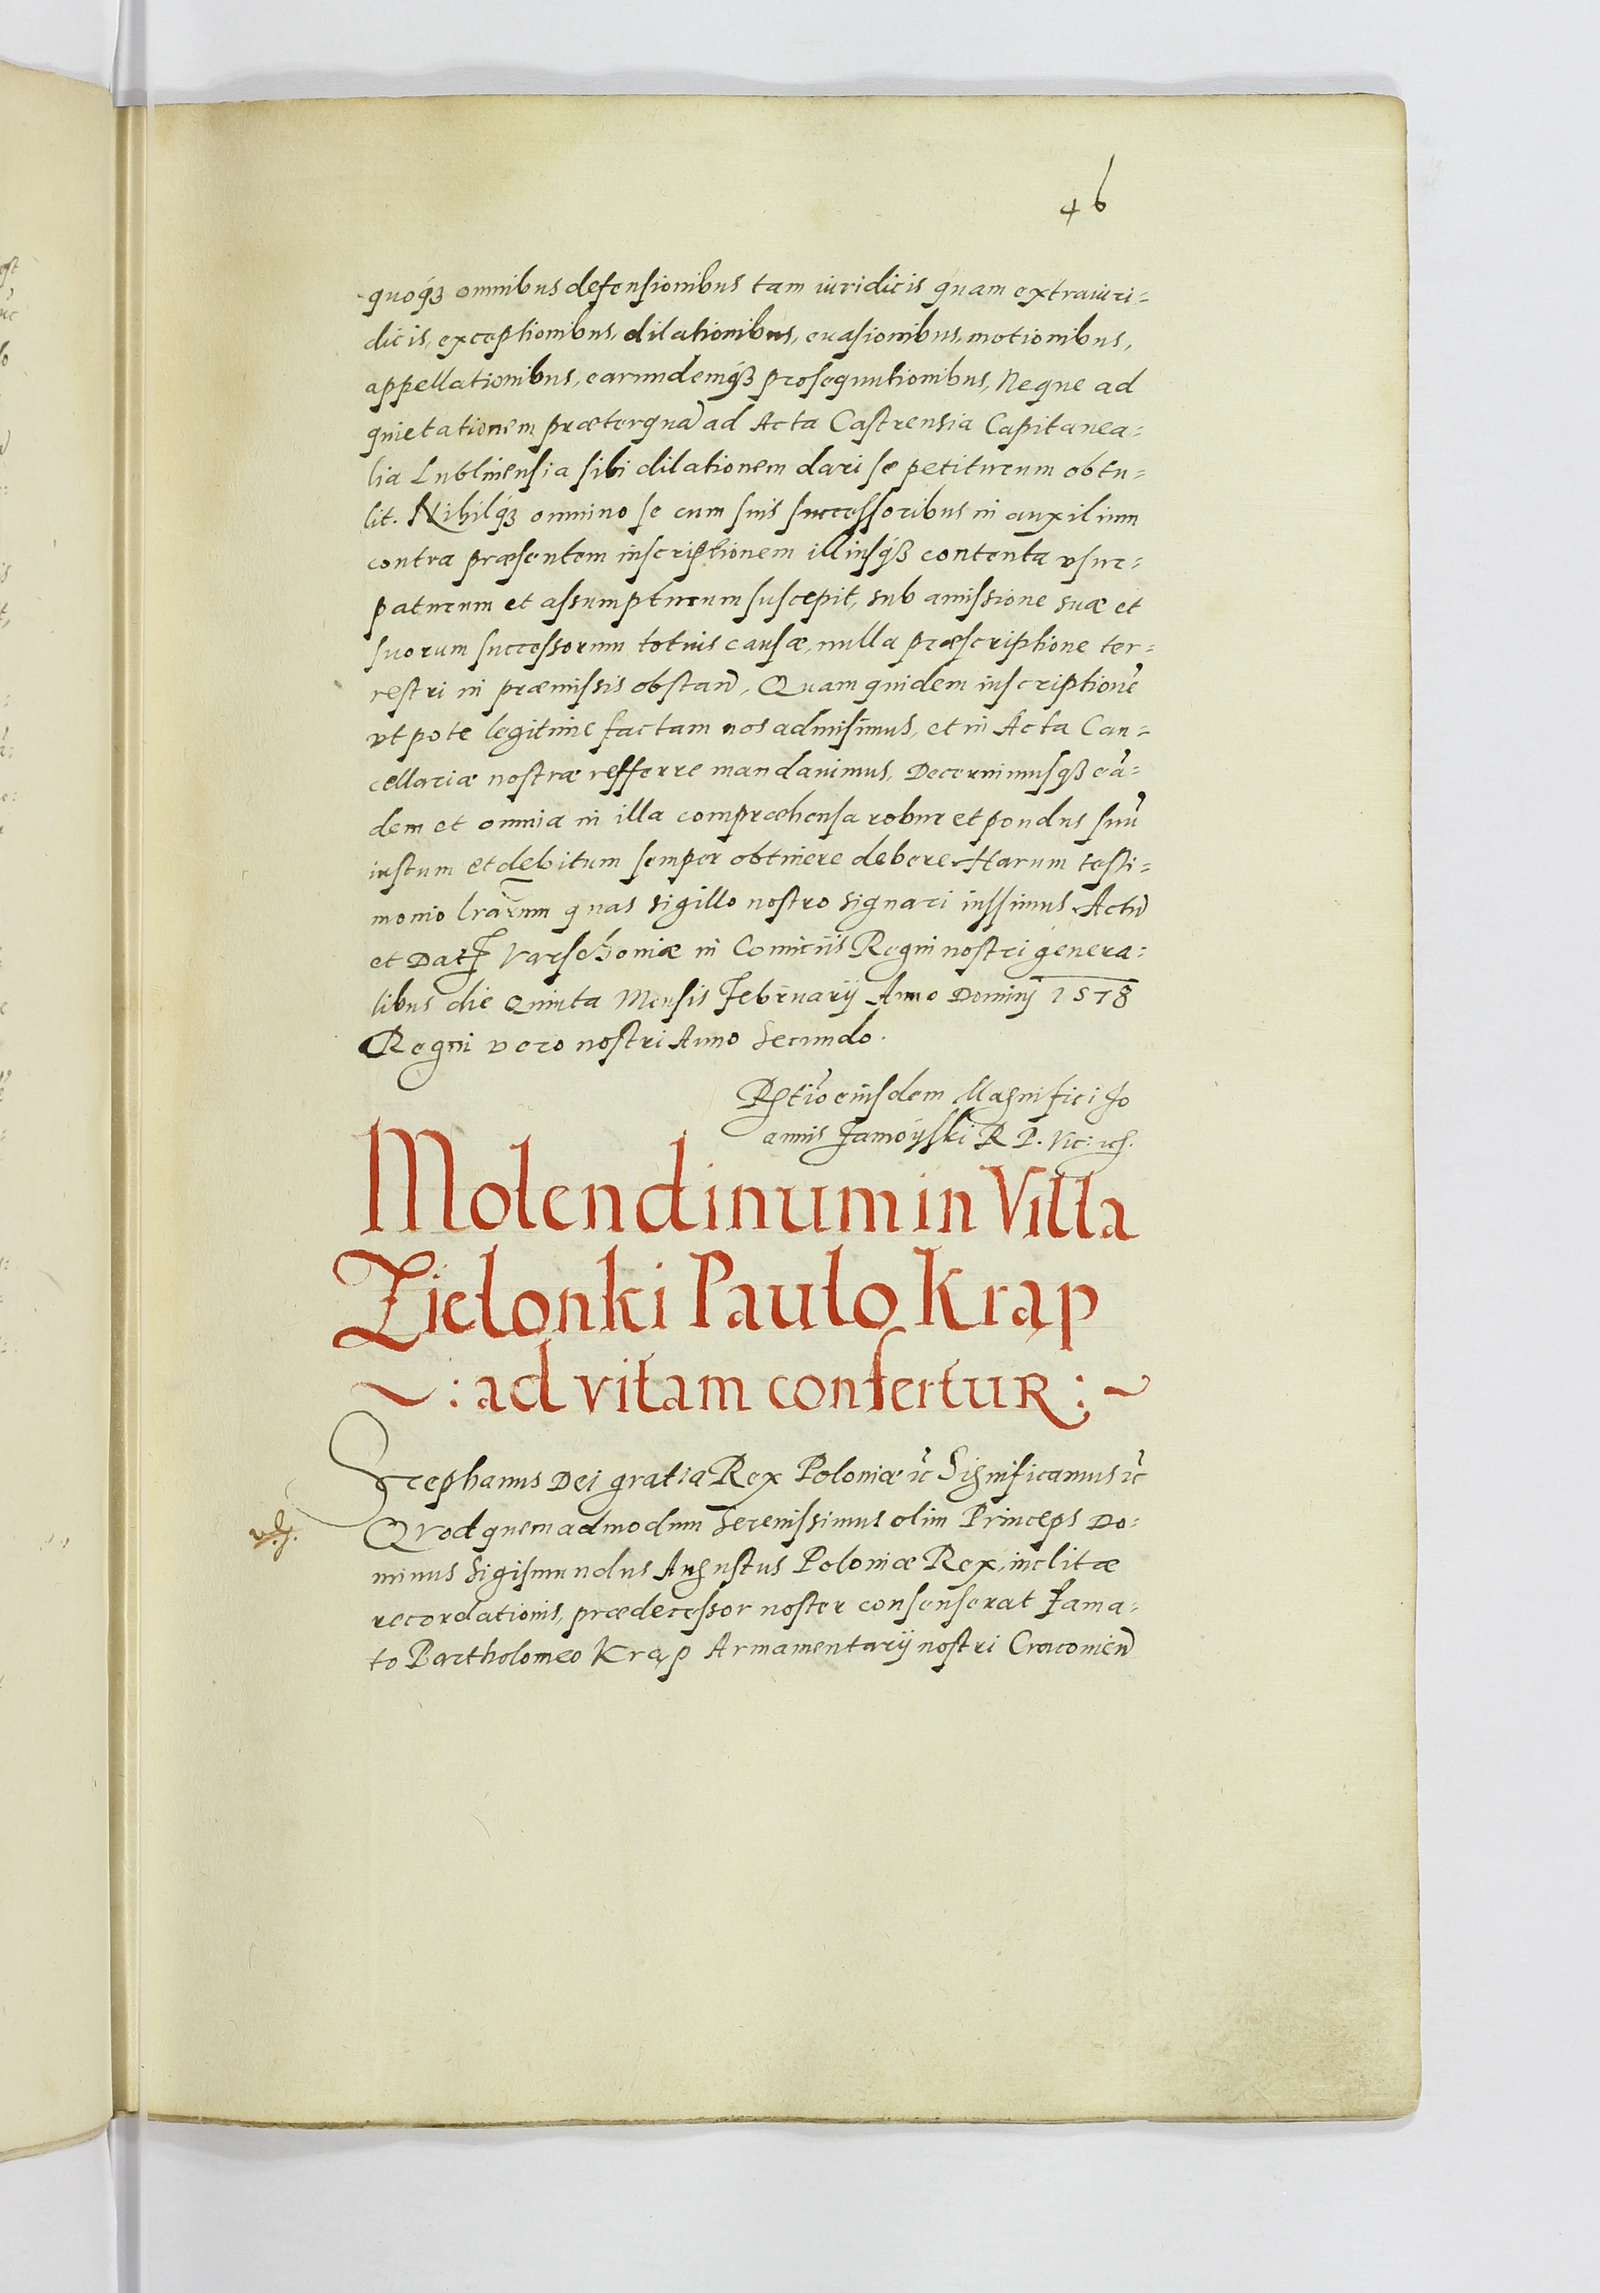 46
quoq₃ omnibus defensionibus tam iuridicis quam extraiuri=
dicis, exceptionibus, dilationibus, euasionibus, motionibus,
appellationibus, earundemq₃ prosequutionibus, Neque ad
quietationem præterquā ad Acta Castrensia Capitanea=
lia Lublinensia sibi dilationem dari se petiturum obtu=
lit. Nihilq₃ omnino se cum suis successoribus in auxilium
contra præsentem inscriptionem illiusq₃ contenta vsur=
paturum et assumpturum suscepit, sub amissione suæ et
suorum successorum totius causæ, nulla præscriptione ter=
restri in præmissis obstan̄, Quam quidem inscriptionē
vt pote legitime factam nos admisimus, et in Acta Can=
cellariæ nostræ refferre mandauimus, Decernimusq₃ eā=
dem et omnia in illa compræhensa robur et pondus suū
iustum et debitum semper obtinere debere, Harum testi=
monio lrārum quas sigillo nostro signari iussimus, Actū
et Dat Varschoviæ in Comitiis Regni nostri genera=
libus die Quinta Mensis Februarij Anno Dominij 1578
Regni vero nostri Anno Secundo.
Retio eiusdem Magnifici Jo
annis Zamoÿski R P. Vic:
Molendinum in Villa
Zielonki Paulo Krąp
~: ad vitam confertur :~
Stephanus Dei gratia Rex Poloniæ ēc Significamus ēc
Quod quemadmodum Serenissimus olim Princeps Do=
minus Sigismundus Augustus Poloniæ Rex, inclitæ
recordationis, prædecessor noster consenserat Fama=
to Bartholomeo Krąp Armamentarij nostri Cracouien̄